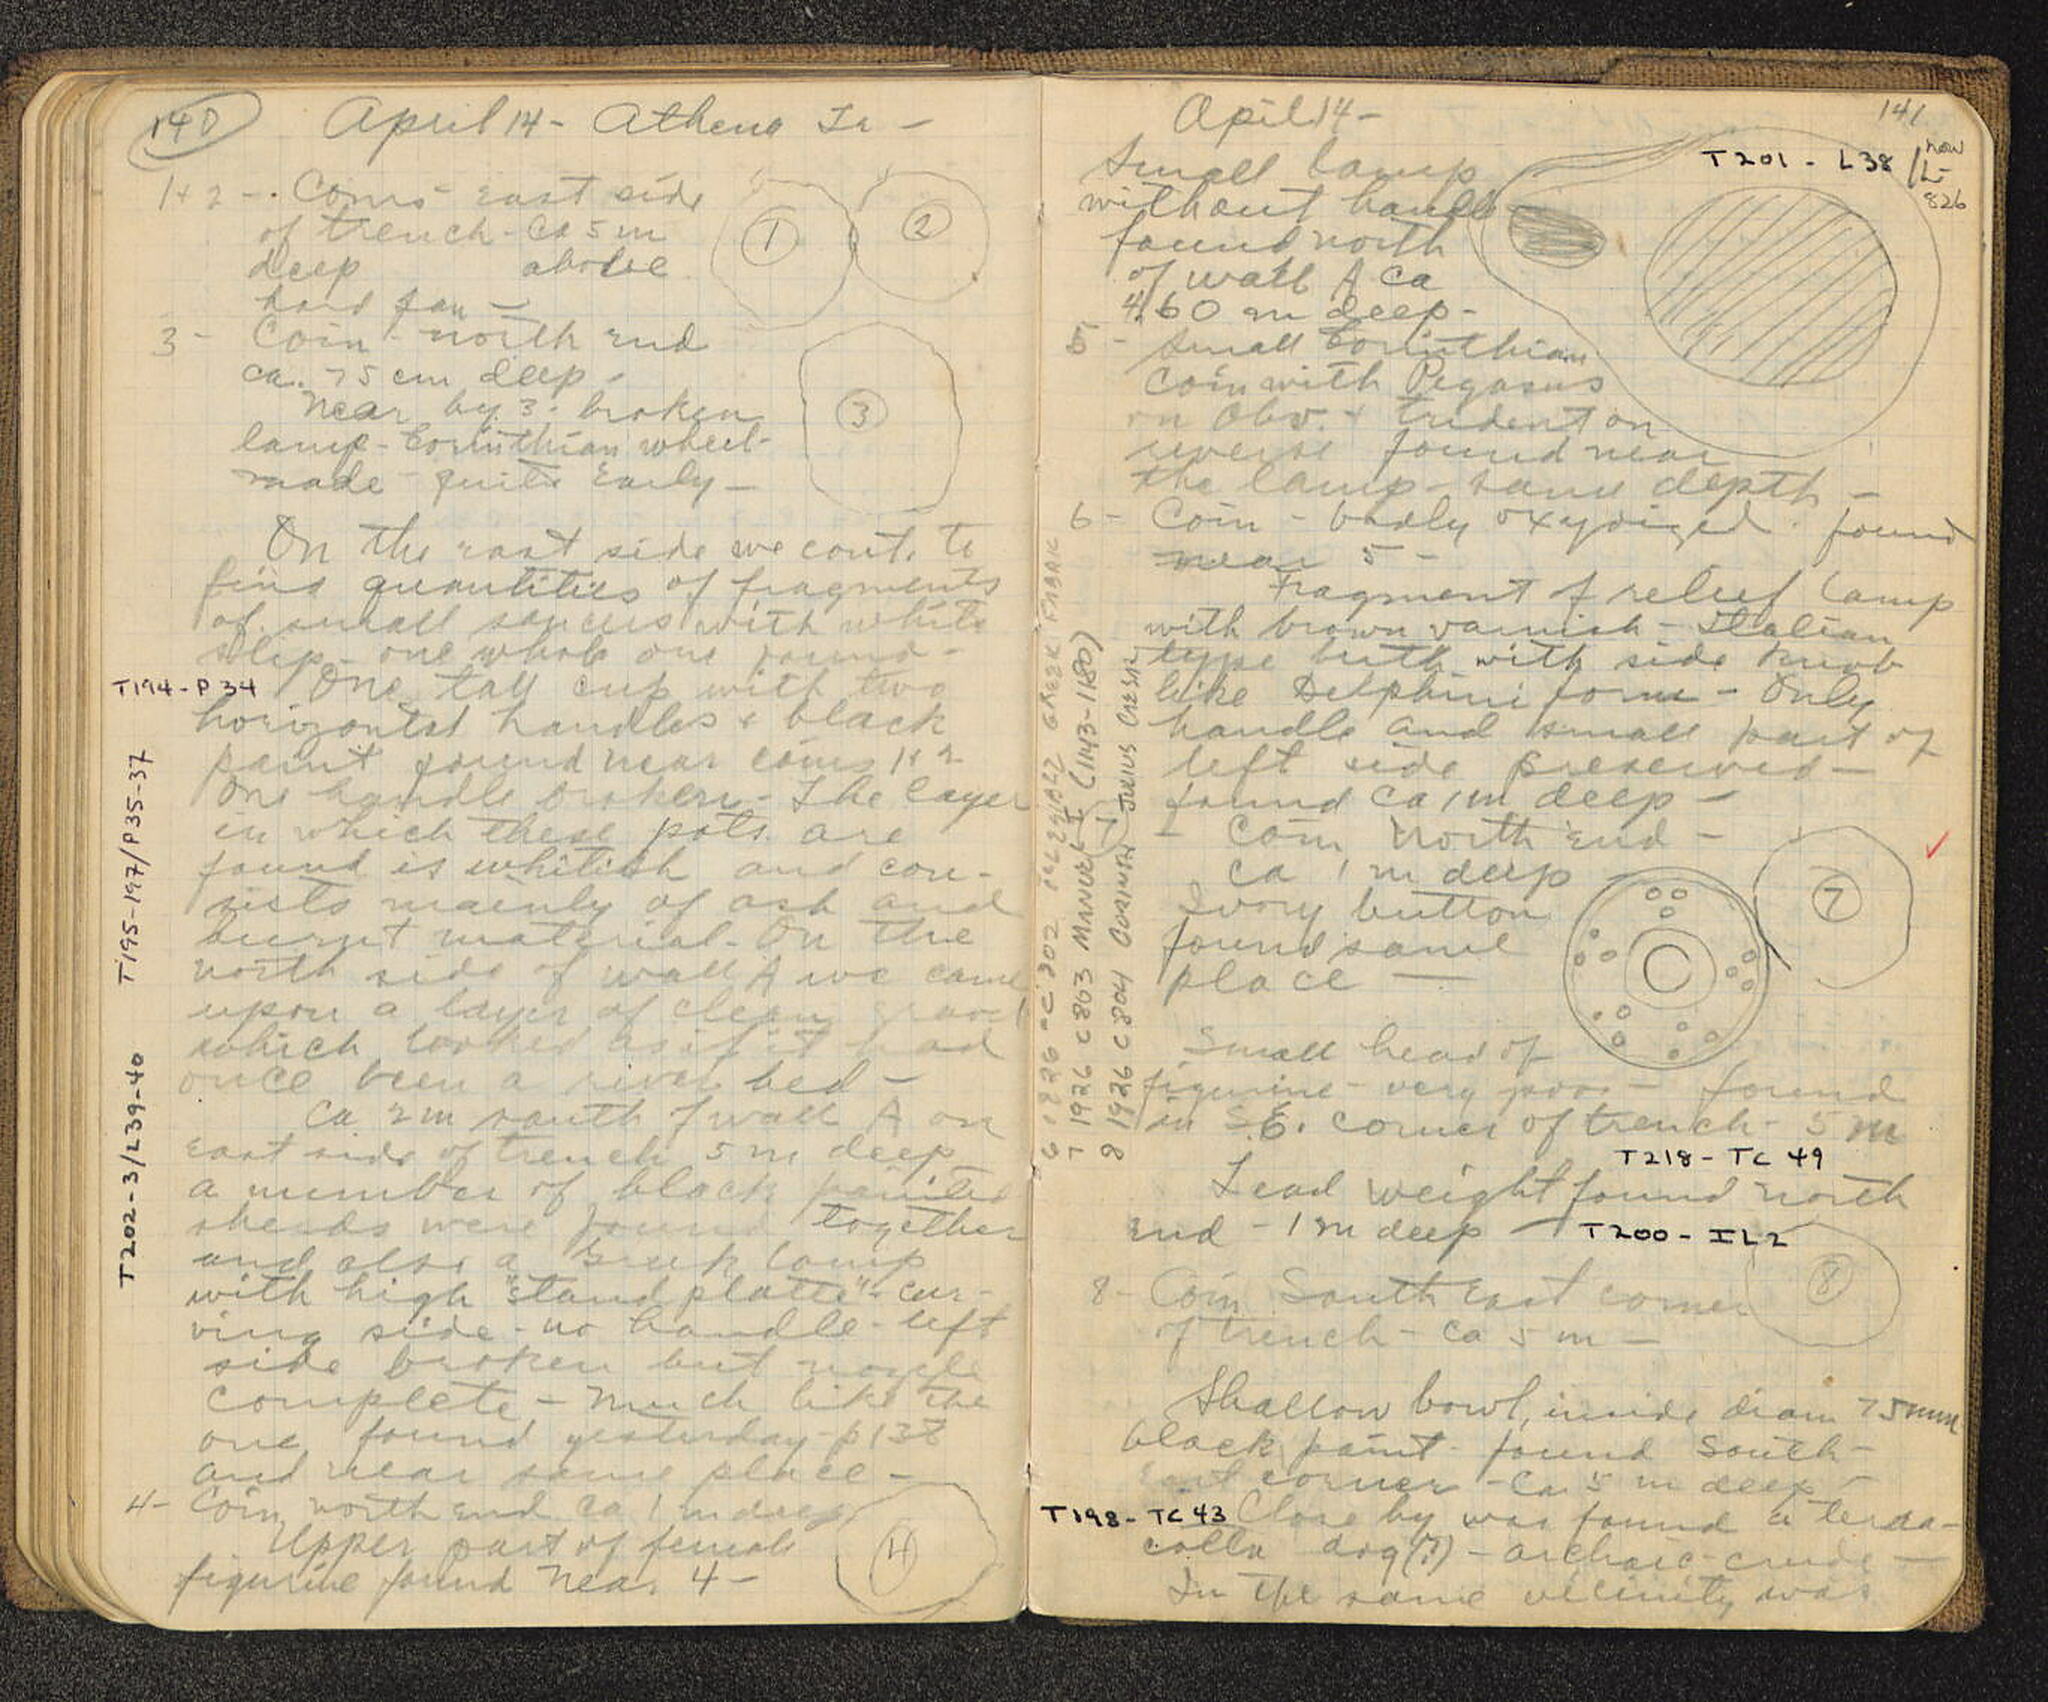 140
April 14 - Athena Tr -
1+2 - Coins - east side
of trench - Ca 5 m
deep above
hard pan -
1
2
3 - Coin - north end
ca. 75 cm deep -
Near by 3. broken
lamp - Corinthian wheel-
made - quite Early -
3
On the east side we cont. to
find quantities of fragments
of small saucers with white
slip - one whole one found -
T194 - P34
One tall cup with two
horizontal handles & black
paint found near coins 1+2
One handle broken - The layer
in which these pots are
found is whitish and con-
sists mainly of ash and
burnt material. On the
north side of wall A we came
upon a layer of clean gravel
which looked as if it had
once been a river bed -
T195-197/P35-37
Ca 2m south of wall A on
East side of trench 5 m deep
a number of black painted
sherds were found together
and also a Greek lamp
with high "stand platte" - cur-
ving side - no handle - left
side broken but nozzle
complete - Much like the
one found yesterday - p 138
and near same place -
T202-3/L39-40
4 - Coin north end ca 1 m deep
Upper part of female
figurine found near 4 -
4
141
April 14 -
T201 - L38 / now
L-
826
Small lamp
without handle
found north
of wall A ca
4.60 m deep -
5 - Small Corinthian
Coin with Pegasus
on Obv. + trident on
reverse found near
the lamp - same depth -
6 - Coin - badly oxydized. found
near 5 -
Fragment of relief lamp
with brown varnish - Italian
type but with side knob
like Delphini form - Only
handle and small part of
left side preserved -
found ca 1m deep -
7 - Coin North End -
Ca 1 m deep -
7
Ivory button
found same
place -
Small head of
figurine - very poor - found
in S.E. corner of trench - 5 m
T218 - TC 49
Lead weight found north
end - 1 m deep - T200 - IL2
8 - Coin South East corner
of trench - Ca 5 m -
8
Shallow bowl, inside diam 75mm
black paint - found South-
East corner - Ca 5 m deep -
T198 - TC 43 Close by was found a terra-
cotta dog(?) - archaic - crude -
In the same vicinity was
6 1926 C 802 ILLEGIBLE GREEK FABRIC
7 1926 C 803 MANUEL I (1143-1180)
8 1926 C 804 CORINTH JULIUS CAESAR